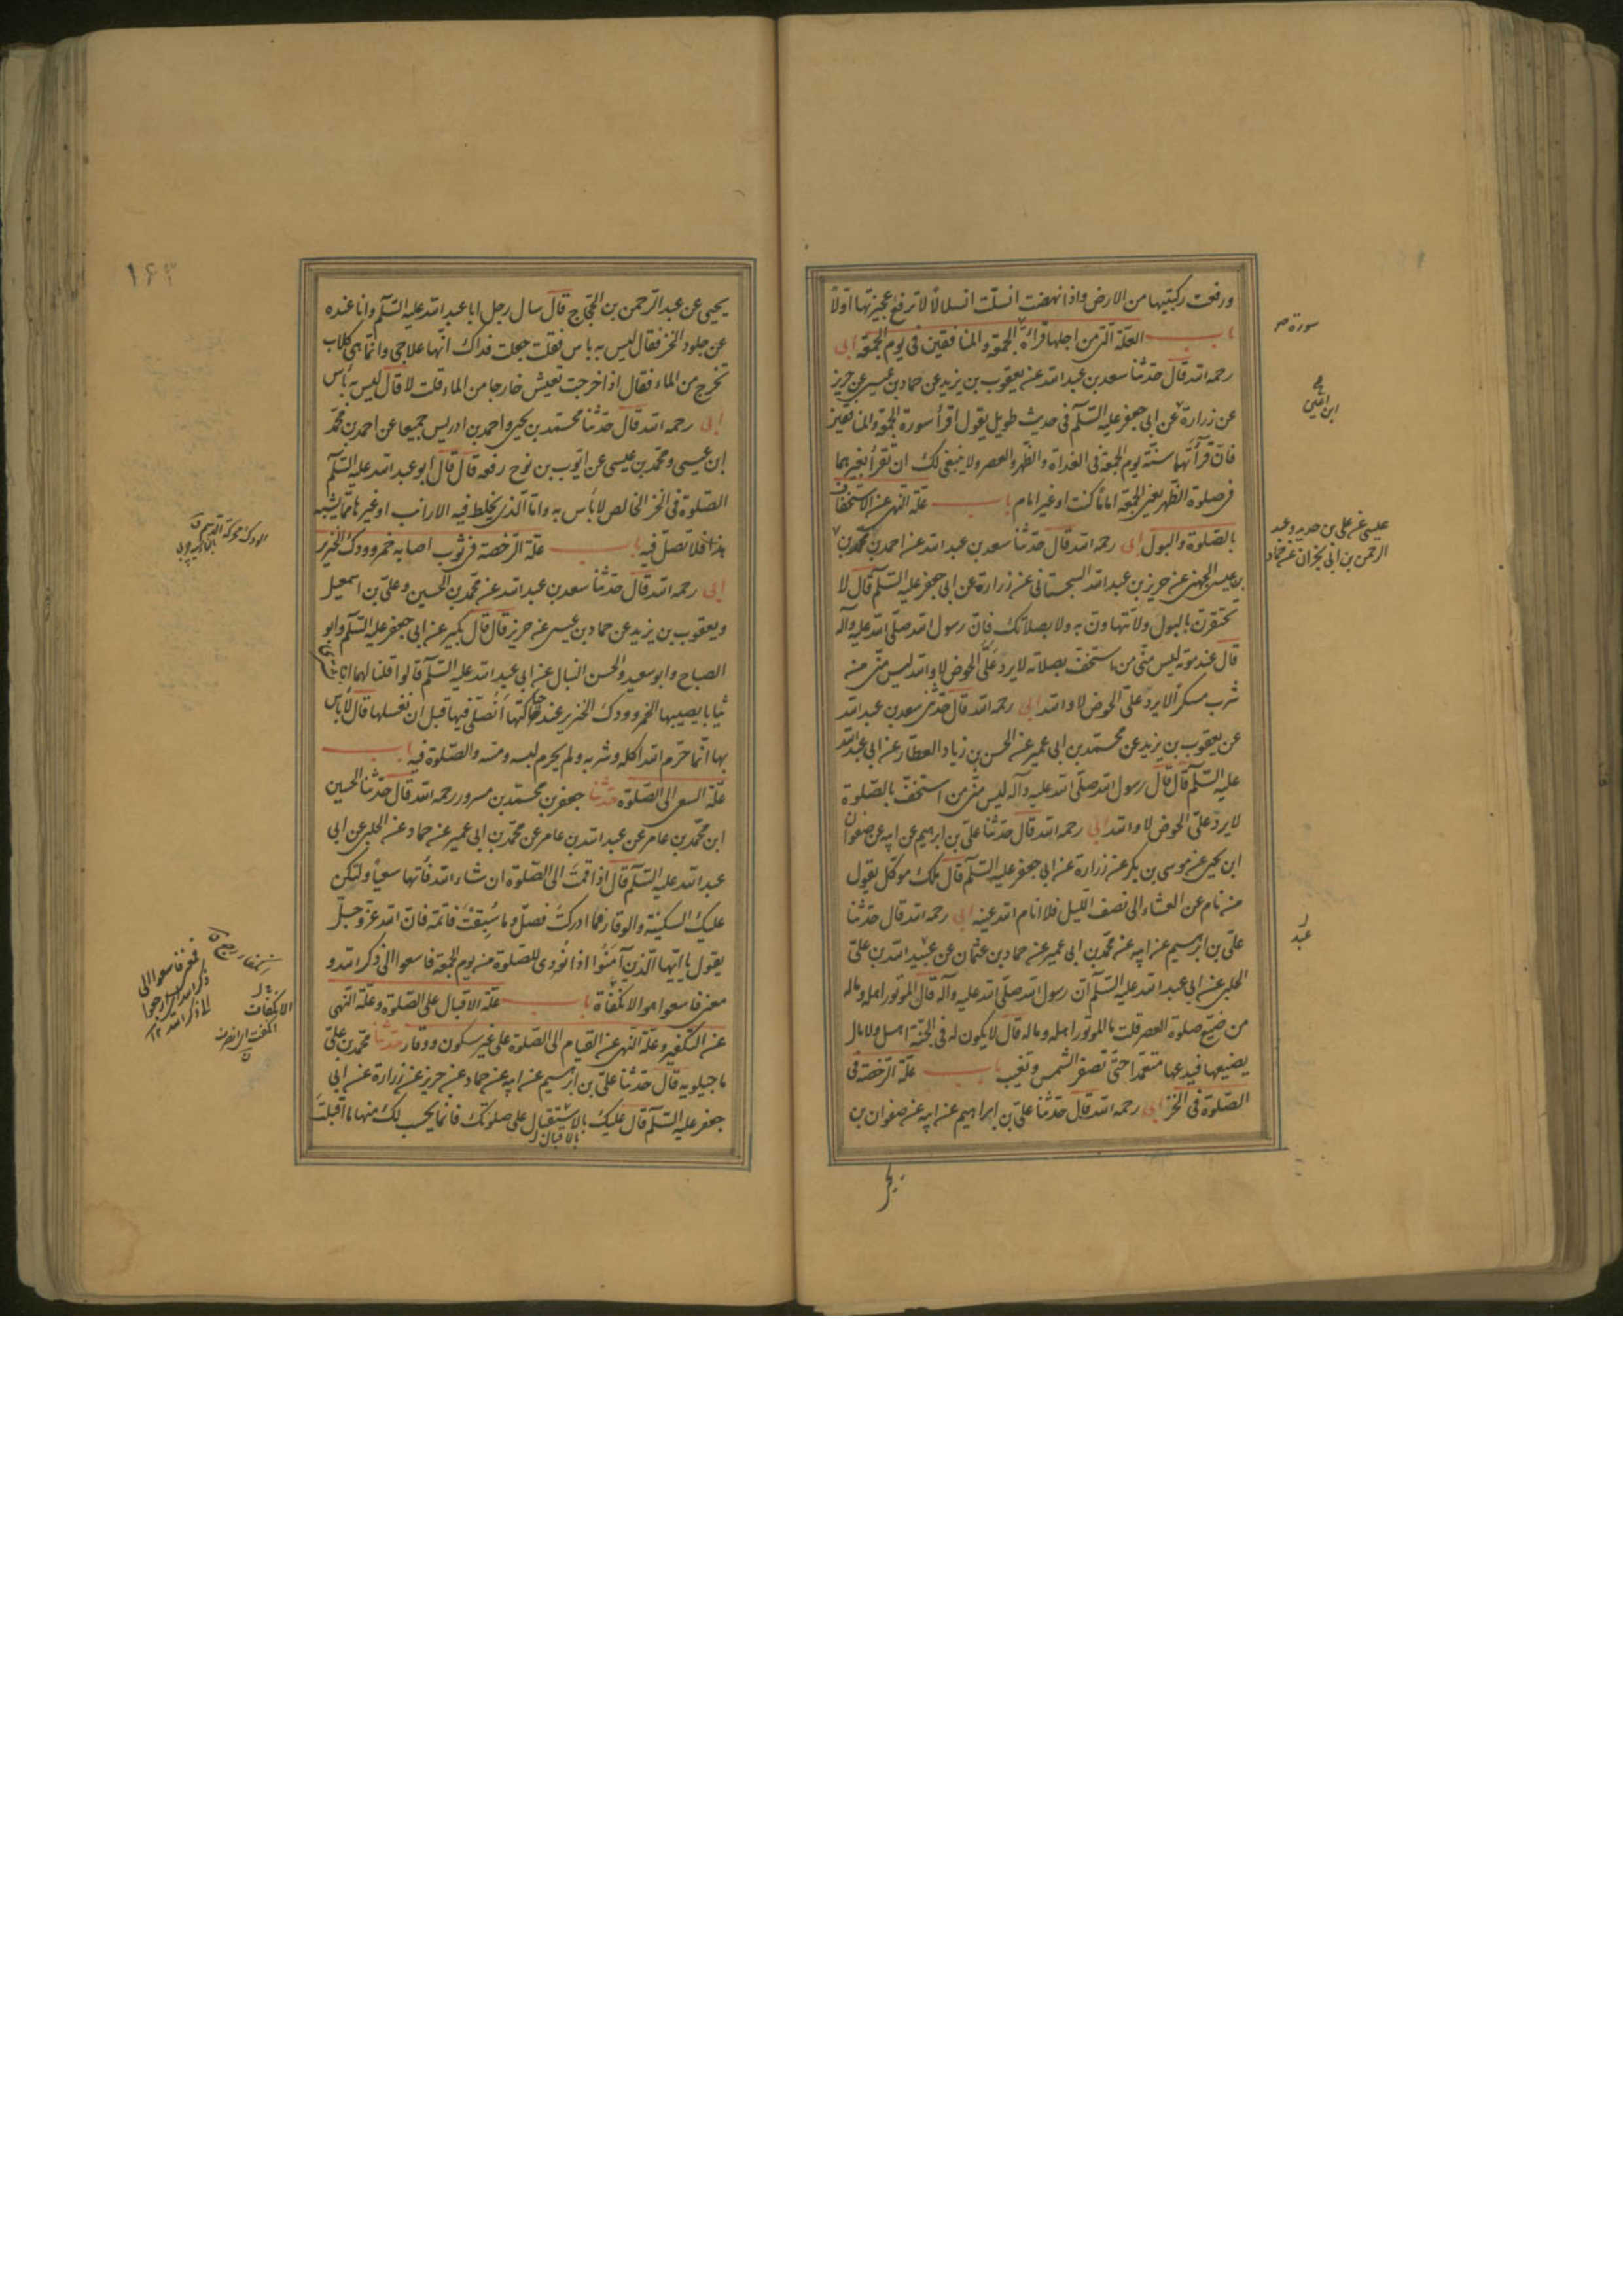 ورفعت ركبتيها من الارض واذا نهضت انسلت انسلالا لا ترفع عجيزتها اولا
باب العلة التى من اجلها قراءة الجمعة والمنافقين فى يوم الجمعة ابى
رحمه الله قال حدثنا سعد بن عبد الله عن يعقوب بن يزيد عن حماد بن عيسى عن حريز
عن زرارة عن ابى جعفر عليه السلم فى حديث طويل يقول اقرأ سورة الجمعة والمنافقين
فان قرأتهما سنة يوم الجمعة فى الغداة والظهر والعصر ولا ينبغى لك ان تقرأ بغيرهما
فى صلوة الظهر يعنى الجمعة اماما كنت او غير امام باب علة النهى عن الاستخفاف
بالصلوة والبول ابى رحمه الله قال حدثنا سعد بن عبد الله عن احمد بن محمد بن
بن عيسى الجهنى عن حريز بن عبد الله السجستانى عن زرارة عن ابى جعفر عليه السلم قال لا
تحتقرن بالبول ولا تتهاون به ولا بصلاتك فان رسول الله صلى الله عليه واله
قال عند موته ليس منى من استخف بصلاته لا يرد على الحوض لا والله ليس منى من
شرب مسكرا لا يرد على الحوض لا والله ابى رحمه الله قال حدثنى سعد بن عبد الله
عن يعقوب بن يزيد عن محمد بن ابى عمير عن الحسن بن زياد العطار عن ابى عبد الله
عليه السلم قال قال رسول الله صلى الله عليه وآله ليس منى من استخف بالصلوة
لا يرد على الحوض لا والله ابى رحمه الله قال حدثنا على بن ابرهيم عن ابيه عن صفوان
ابن يحيى عن موسى بن بكر عن زرارة عن ابى جعفر عليه السلم قال ملك موكل يقول
من نام عن العشاء الى نصف الليل فلا انام الله عينه ابى رحمه الله قال حدثنا
على بن ابرهيم عن ابيه عن محمد بن ابى عمير عن حماد بن عثمان عن عبيد الله بن على
الحلبى عن ابى عبد الله عليه السلم ان رسول الله صلى الله عليه وآله قال الموتور اهله وماله
من ضيع صلوة العصر قلت ما الموتور اهله وماله قال لا يكون له فى الجنة اهل ولا مال
يضيعها فيدعها متعمدا حتى تصفر الشمس وتغيب باب علة الرخصة فى
الصلوة فى الخز ابى رحمه الله قال حدثنا على بن ابراهيم عن ابيه عن صفوان بن
عيسى عن على بن حديد وعبد
الرحمن بن ابى نجران عن حماد
عبد
١٦٣
يحيى عن عبد الرحمن بن الحجاج قال سال رجل ابا عبد الله عليه السلم وانا عنده
عن جلود الخز فقال ليس به باس فقلت جعلت فداك انها علاجى وانما هى كلاب
تخرج من الماء فقال اذا خرجت تعيش خارجا من الماء قلت لا قال ليس به بأس
ابى رحمه الله قال حدثنا محمد بن يحيى واحمد بن ادريس جميعا عن احمد بن محمد
ابن عيسى ومحمد بن عيسى عن ايوب بن نوح رفعه قال قال ابو عبد الله عليه السلم
الصلوة فى الخز الخالص لا بأس به واما الذى يخلط فيه الارانب او غيرها مما يشبه
هذا فلا تصل فيه باب علة الرخصة فى ثوب اصابه خمر وودك الخنزير
ابى رحمه الله قال حدثنا سعد بن عبد الله عن محمد بن الحسين وعلى بن اسمعيل
ويعقوب بن يزيد عن حماد بن عيسى عن حريز قال قال بكير عن ابى جعفر عليه السلم وابو
الصباح وابو سعيد والحسن النبال عن ابى عبد الله عليه السلم قالوا قلنا لهما انا نشترى
ثيابا يصيبها الخمر وودك الخنزير عند حاكتها أنصلى فيها قبل ان نغسلها قال لا بأس
بها انما حرم الله اكله وشربه ولم يحرم لبسه ومسه والصلوة فيه باب
علة السعى الى الصلوة حدثنا جعفر بن محمد بن مسرور رحمه الله قال حدثنا الحسين
ابن محمد بن عامر عن عبد الله بن عامر عن محمد بن ابى عمير عن حماد عن الحلبى عن ابى
عبد الله عليه السلم قال اذا قمت الى الصلوة ان شاء الله فأتها سعيا ولتكن
عليك السكينة والوقار فما ادركت فصل وما سبقت فاتمه فان الله عز وجل
يقول يا ايها الذين آمنوا اذا نودى للصلوة من يوم الجمعة فاسعوا الى ذكر الله و
معنى فاسعوا هو الانكفاة باب علة الاقبال على الصلوة وعلة النهى
عن التكفير وعلة النهى عن القيام الى الصلوة على غير سكون ووقار حدثنا محمد بن على
ماجيلويه قال حدثنا على بن ابرهيم عن ابيه عن حماد عن حريز عن زرارة عن ابى
جعفر عليه السلم قال عليك بالاستقبال على صلوتك فانما يحسب لك منها ما اقبلت
بالاقبال
الانكفات